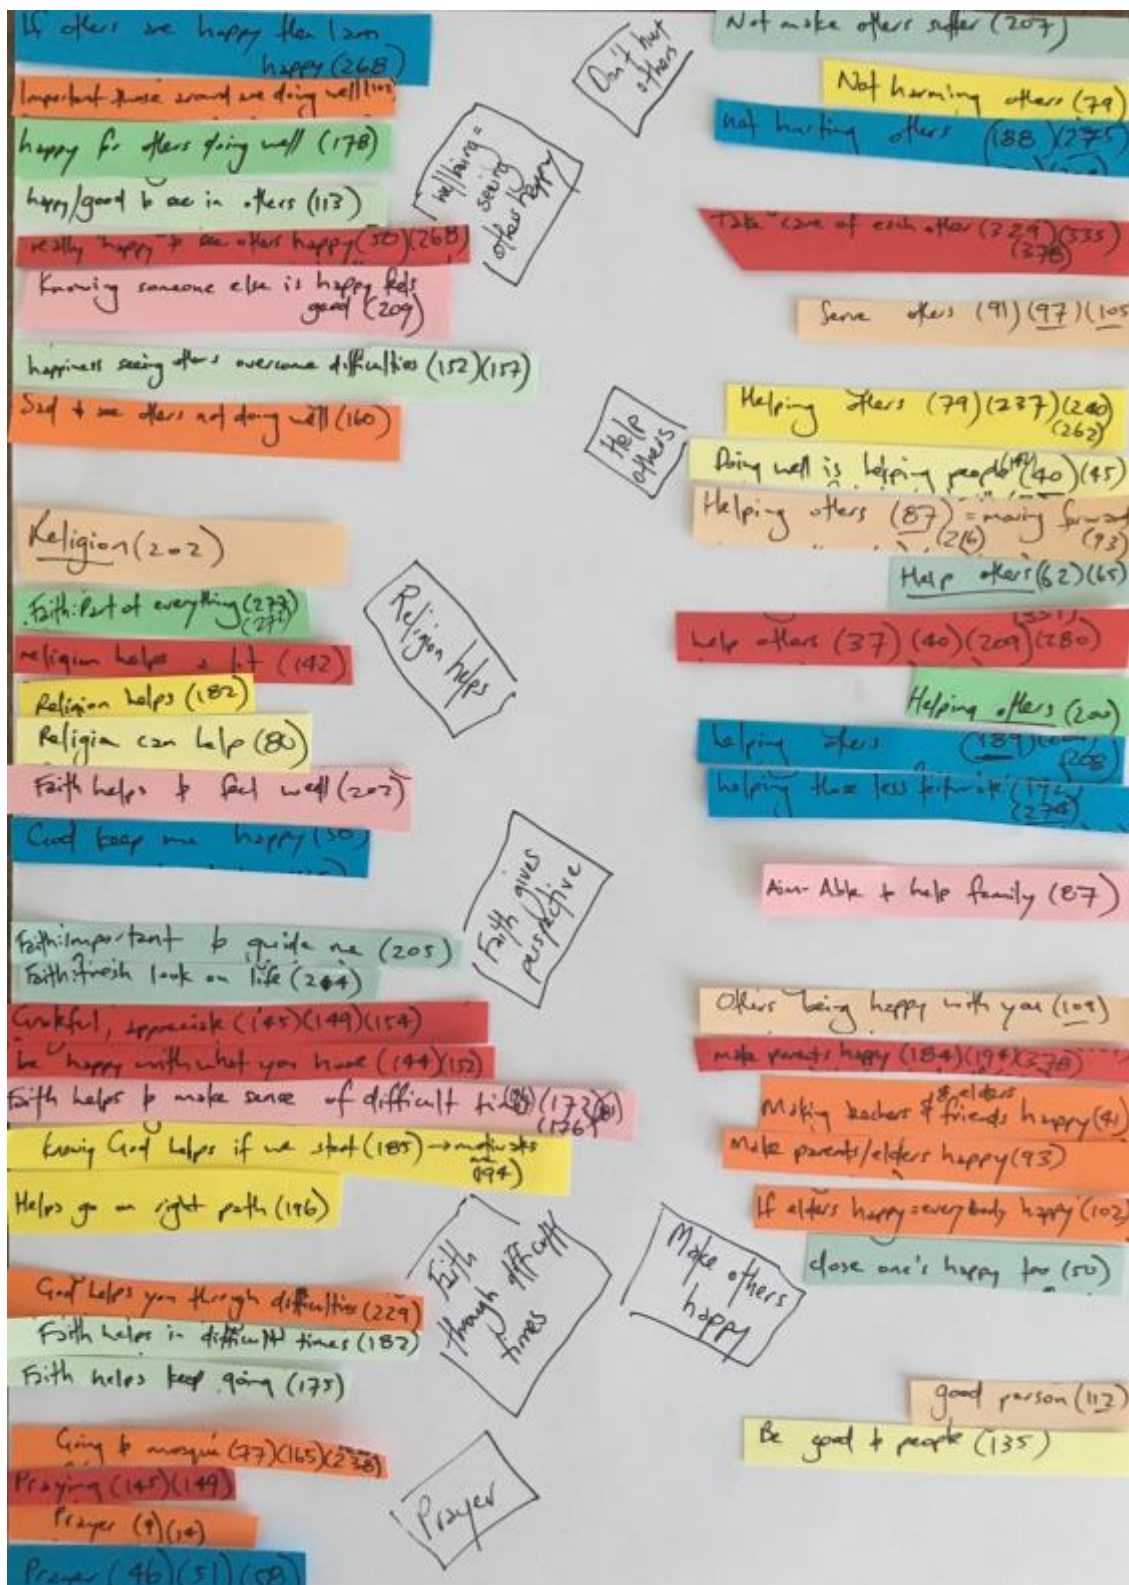 If others are happy then I am
happy (268)
Important those around me doing well (102)
happy for others doing well (178)
happy/good to see in others (113)
really "happy" to see others happy (50)(268)
Knowing someone else is happy feels
good (209)
happiness seeing others overcome difficulties (152)(157)
Sad to see others not doing well (160)
wellbeing =
seeing
others happy
Religion (202)
Faith: Part of everything (277)
religion helps a lot (142)
Religion helps (182)
Religion can help (80)
Faith helps to feel well (202)
God keep me happy (50)
Religion helps
Faith: important to guide me (205)
Faith: fresh look on life (244)
Grateful, appreciate (145)(149)(154)
be happy with what you have (144)(152)
Faith helps to make sense of difficult times (172)
(176)
Knowing God helps if we start (185) → motivates
me (194)
Helps go on right path (196)
Faith gives
perspective
God helps you through difficulties (229)
Faith helps in difficult times (182)
Faith helps keep going (175)
Faith
through difficult
times
Going to mosque (77)(165)(238)
Praying (145)(149)
Prayer (9)(14)
Prayer (46)(51)(58)
Prayer
Don't hurt
others
Not make others suffer (207)
Not harming others (79)
not hurting others (188)(275)
Take care of each other (329)(335)
(378)
Serve others (91)(97)(105
Help
others
Helping others (79)(237)(240)
(262)
Doing well is helping people (40)(45)
Helping others (87) = moving forward
(216) (93)
Help others (62)(65)
help others (37)(40)(209)(280)
Helping others (200)
helping others (189)
(208)
helping those less fortunate (192)
(274)
Aim - Able to help family (87)
Others being happy with you (109)
make parents happy (184)(194)(378)
Making teachers & friends happy (41)
& elders
Make parents/elders happy (93)
If elders happy = everybody happy (102)
close one's happy too (50)
Make others
happy
good person (112)
Be good to people (135)